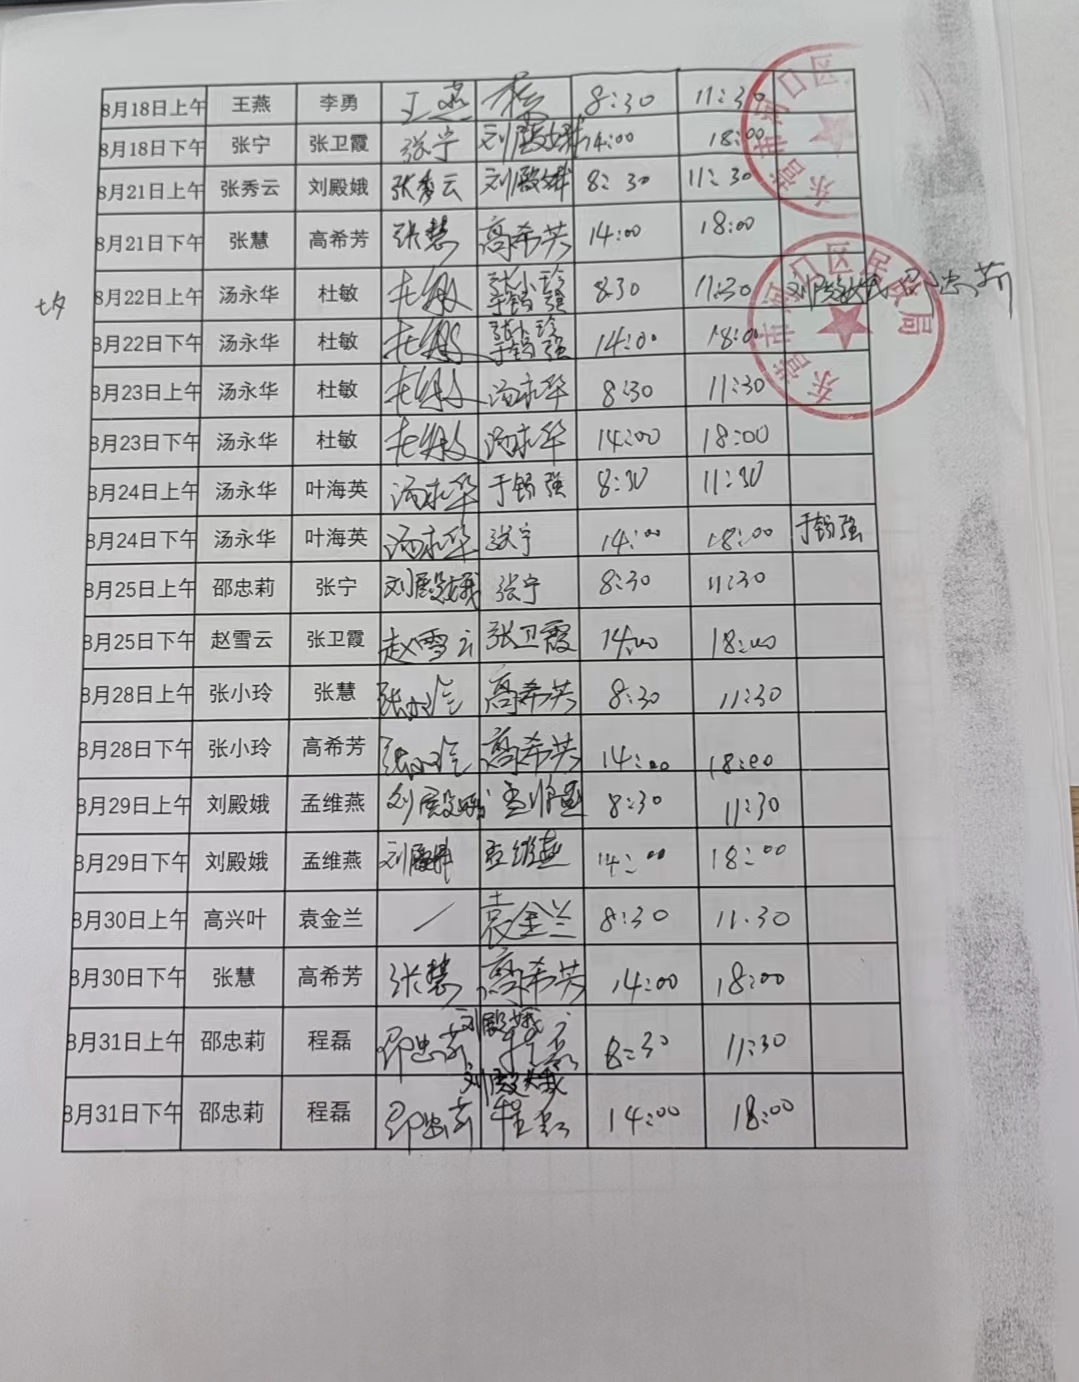 8月18日上午 王燕 李勇 王燕 8:30 11:30
8月18日下午 张宁 张卫霞 张宁 刘殿娥 14:00 18:00
8月21日上午 张秀云 刘殿娥 张秀云 刘殿娥 8:30 11:30
8月21日下午 张慧 高希芳 张慧 高希芳 14:00 18:00
七夕 8月22日上午 汤永华 杜敏 杜敏 张小玲 于锡强 8:30 11:30 刘殿娥 邵忠莉
8月22日下午 汤永华 杜敏 杜敏 张小玲 于锡强 14:00 18:00
8月23日上午 汤永华 杜敏 杜敏 汤永华 8:30 11:30
8月23日下午 汤永华 杜敏 杜敏 汤永华 14:00 18:00
8月24日上午 汤永华 叶海英 汤永华 于锡强 8:30 11:30
8月24日下午 汤永华 叶海英 汤永华 张宁 14:00 18:00 于锡强
8月25日上午 邵忠莉 张宁 刘殿娥 张宁 8:30 11:30
8月25日下午 赵雪云 张卫霞 赵雪云 张卫霞 14:00 18:00
8月28日上午 张小玲 张慧 张小玲 高希芳 8:30 11:30
8月28日下午 张小玲 高希芳 张小玲 高希芳 14:00 18:00
8月29日上午 刘殿娥 孟维燕 刘殿娥 孟维燕 8:30 11:30
8月29日下午 刘殿娥 孟维燕 刘殿娥 孟维燕 14:00 18:00
8月30日上午 高兴叶 袁金兰 袁金兰 8:30 11:30
8月30日下午 张慧 高希芳 张慧 高希芳 14:00 18:00
8月31日上午 邵忠莉 程磊 邵忠莉 刘殿娥 程磊 8:30 11:30
8月31日下午 邵忠莉 程磊 邵忠莉 刘殿娥 程磊 14:00 18:00
东营市河口区
东营市河口区民政局